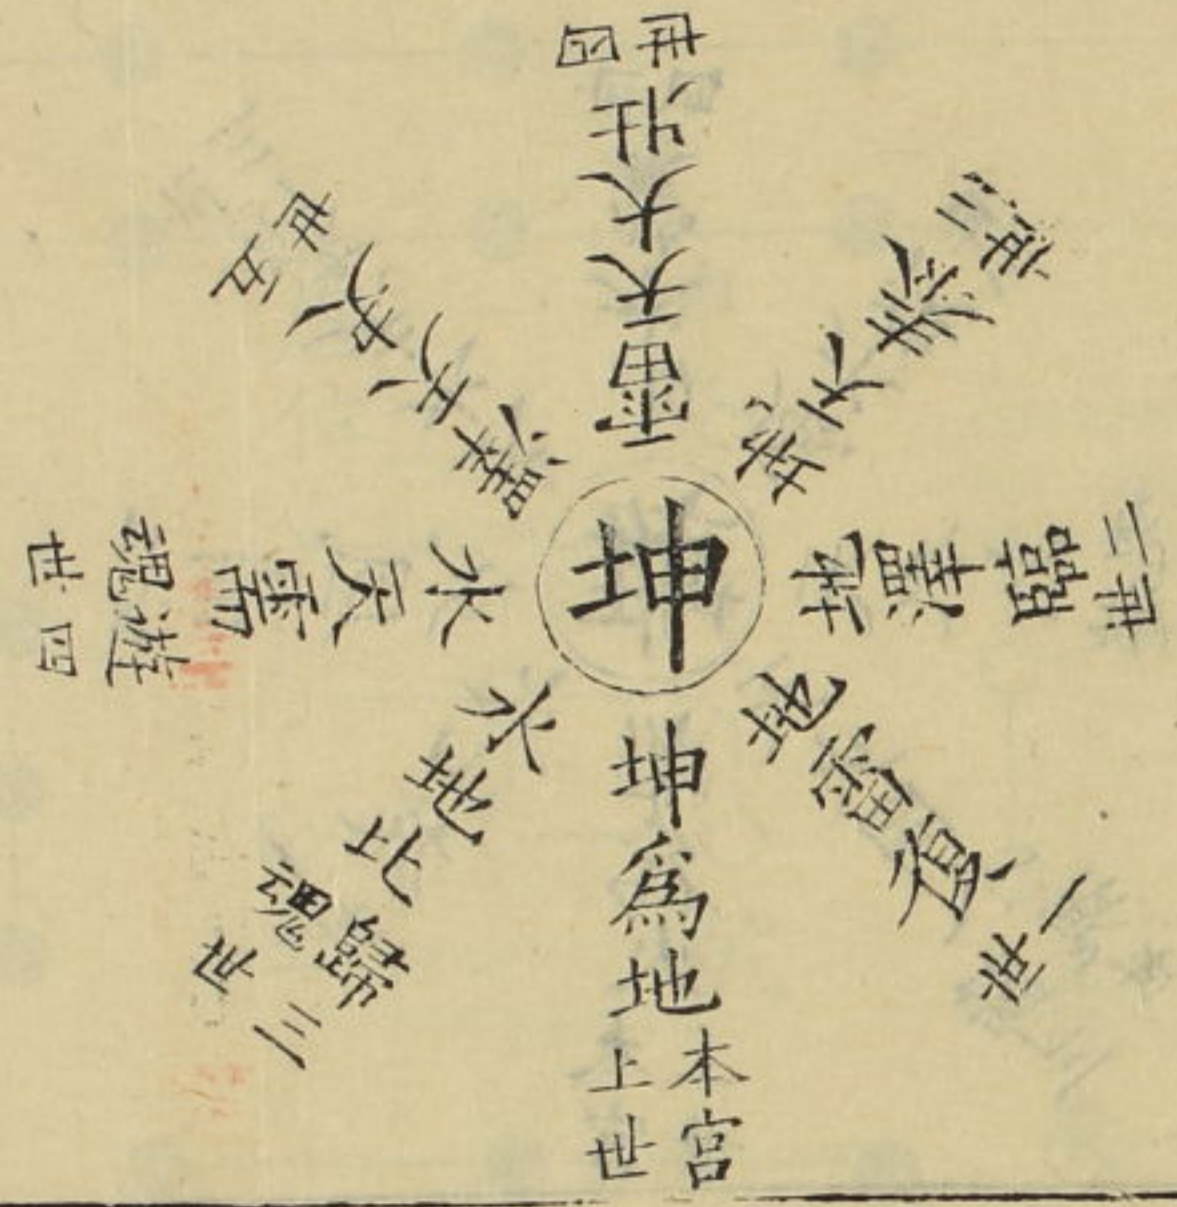 坤
坤為地 本宮上世
地雷復 一世
地澤臨 二世
地天泰 三世
雷天大壯 四世
澤天夬 五世
水天需 遊魂四世
水地比 歸魂三世